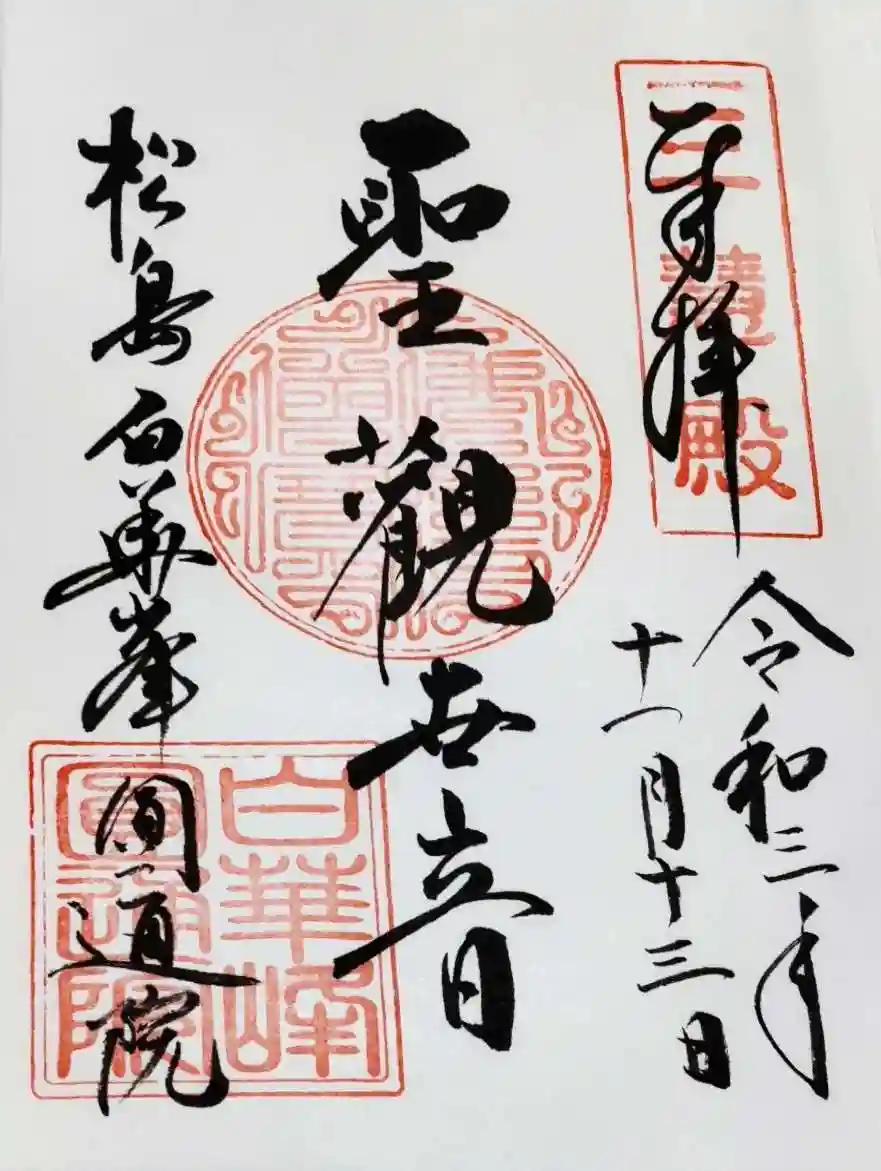 奉拝
三慧殿
令和三年
十一月十三日
聖觀世音
松島白華峯圓通院
白華峰
圓通院